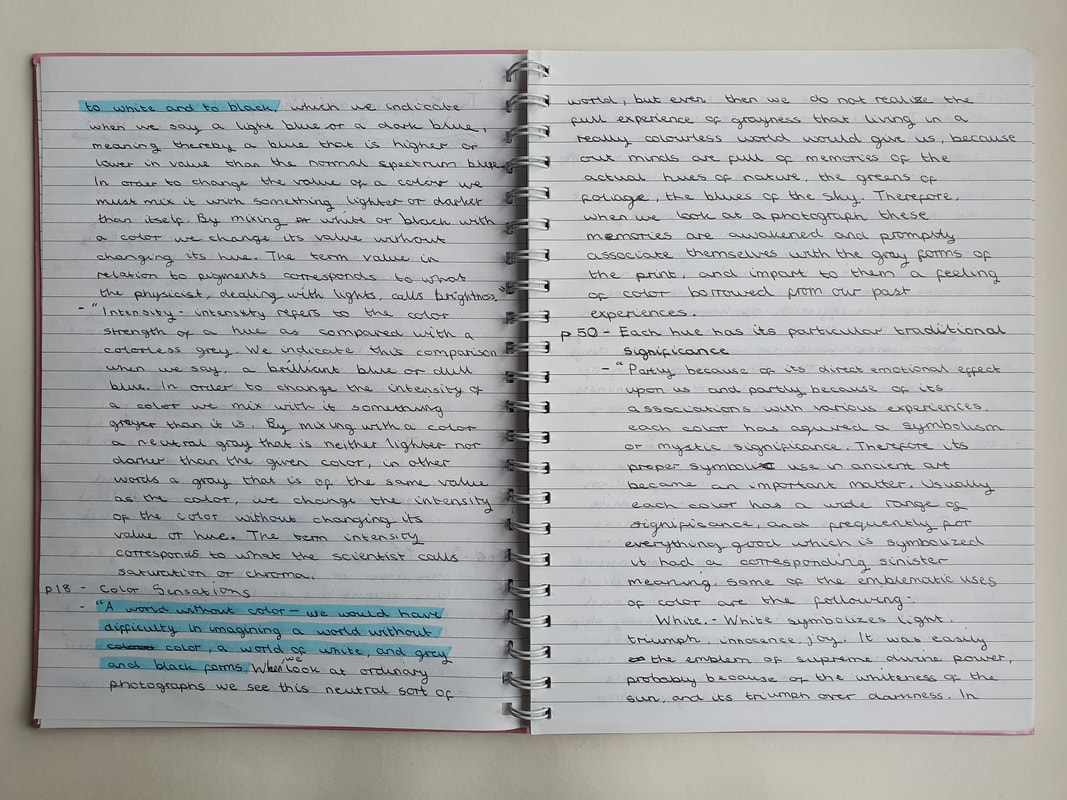 to white and to black, which we indicate
when we say a light blue or a dark blue,
meaning thereby a blue that is higher or
lower in value than the normal spectrum blue.
In order to change the value of a color we
must mix it with something lighter or darker
than itself. By mixing white or black with
a color we change its value without
changing its hue. The term value in
relation to pigments corresponds to what
the physicist, dealing with lights, calls brightness.
- "Intensity - intensity refers to the color
strength of a hue as compared with a
colorless grey. We indicate this comparison
when we say, a brilliant blue or dull
blue. In order to change the intensity of
a color we mix with it something
greyer than it is. By mixing with a color
a neutral gray that is neither lighter nor
darker than the given color, in other
words a gray that is of the same value
as the color, we change the intensity
of the color without changing its
value or hue. The term intensity
corresponds to what the scientist calls
saturation or chroma.
p18 - Color Sensations
- "A world without color - we would have
difficulty in imagining a world without
color, a world of white and grey
and black forms. When we look at ordinary
photographs we see this neutral sort of
world, but even then we do not realize the
full experience of grayness that living in a
really colourless world would give us, because
our minds are full of memories of the
actual hues of nature, the greens of
foliage, the blues of the sky. Therefore,
when we look at a photograph these
memories are awakened and promptly
associate themselves with the gray forms of
the print, and impart to them a feeling
of color borrowed from our past
experiences.
p50 - Each hue has its particular traditional
significance
- "Partly because of its direct emotional effect
upon us and partly because of its
associations with various experiences,
each color has aquired a symbolism
or mystic significance. Therefore its
proper symbolic use in ancient art
became an important matter. Usually
each color has a wide range of
significance, and frequently for
everything good which is symbolized
it had a corresponding sinister
meaning, some of the emblematic uses
of color are the following:
White. - White symbolizes light,
triumph, innocence, joy. It was easily
the emblem of supreme divine power,
probably because of the whiteness of the
sun, and its triumph over darkness. In